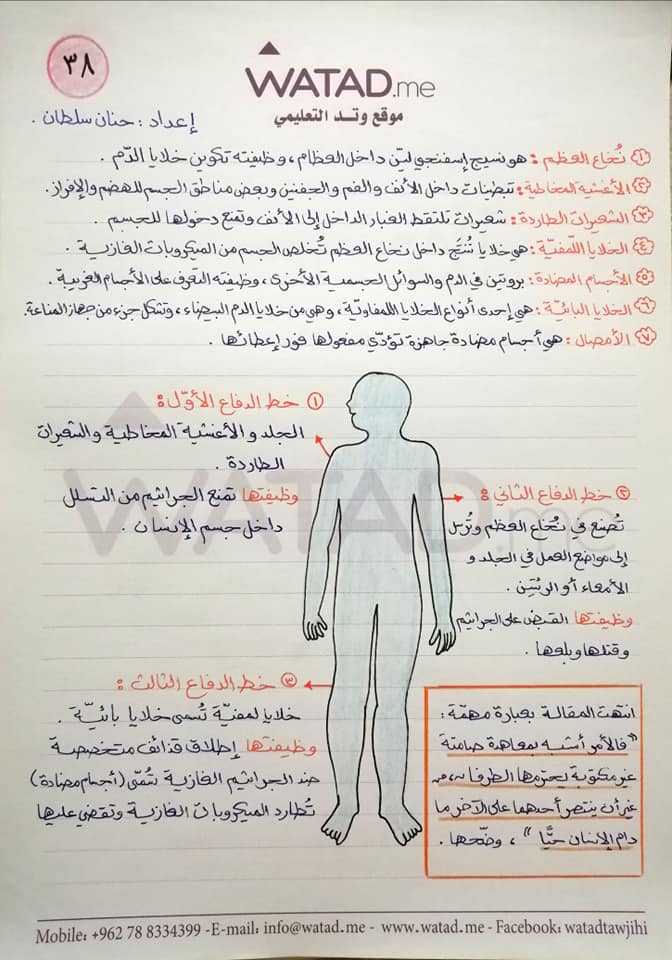 ٣٨
WATAD.me
موقع وتد التعليمي
إعداد : حنان سلطان .
١ نُخاع العظم : هو نسيج إسفنجي ليّن داخل العظام ، وظيفته تكوين خلايا الدّم .
٢ الأغشية المخاطية : تبطينات داخل الأنف والفم والجفنين وبعض مناطق الجسم للهضم والإفراز.
٣ الشعيرات الطاردة : شعيرات تلتقط الغبار الداخل إلى الأنف وتمنع دخولها للجسم .
٤ الخلايا اللمفيّة : هي خلايا تُنتَج داخل نخاع العظم تُخلص الجسم من الميكروبات الغازية .
٥ الأجسام المضادة : بروتين في الدم والسوائل الجسمية الأخرى ، وظيفته التعرف على الأجسام الغريبة .
٦ الخلايا البائيّة : هي إحدى أنواع الخلايا اللمفاويّة ، وهي من خلايا الدم البيضاء ، وتشكل جزء من جهاز المناعة.
٧ الأمصال : هي أجسام مضادة جاهزة تؤدّي مفعولها فور إعطائها .
١ خط الدفاع الأوّل :
الجلد و الأغشية المخاطية والشعيرات
الطاردة .
وظيفتها تمنع الجراثيم من التسلل
داخل جسم الإنسان .
٢ خط الدفاع الثاني :
تُصنع في نُخاع العظم وتُرسل
إلى مواضع العمل في الجلد و
الأمعاء أو الرئتين .
وظيفتها القبض على الجراثيم
وقتلها وبلعها .
٣ خط الدفاع الثالث :
خلايا لمفيّة تُسمى خلايا بائيّة .
وظيفتها إطلاق قذائف متخصصة
ضد الجراثيم الغازية تُسمّى (أجسام مضادة)
تُطارد الميكروبات الغازية وتقضي عليها
انتهت المقالة بعبارة مهمّة :
" فالأمر أشبه بمعاهدة صامتة
غير مكتوبة يحترمها الطرفان ، من
غير أن ينتصر أحدهما على الآخر ما
دام الإنسان حيًّا " ، وضّحها .
WATAD.me
Mobile: +962 78 8334399 -E-mail: info@watad.me - www.watad.me - Facebook: watadtawjihi